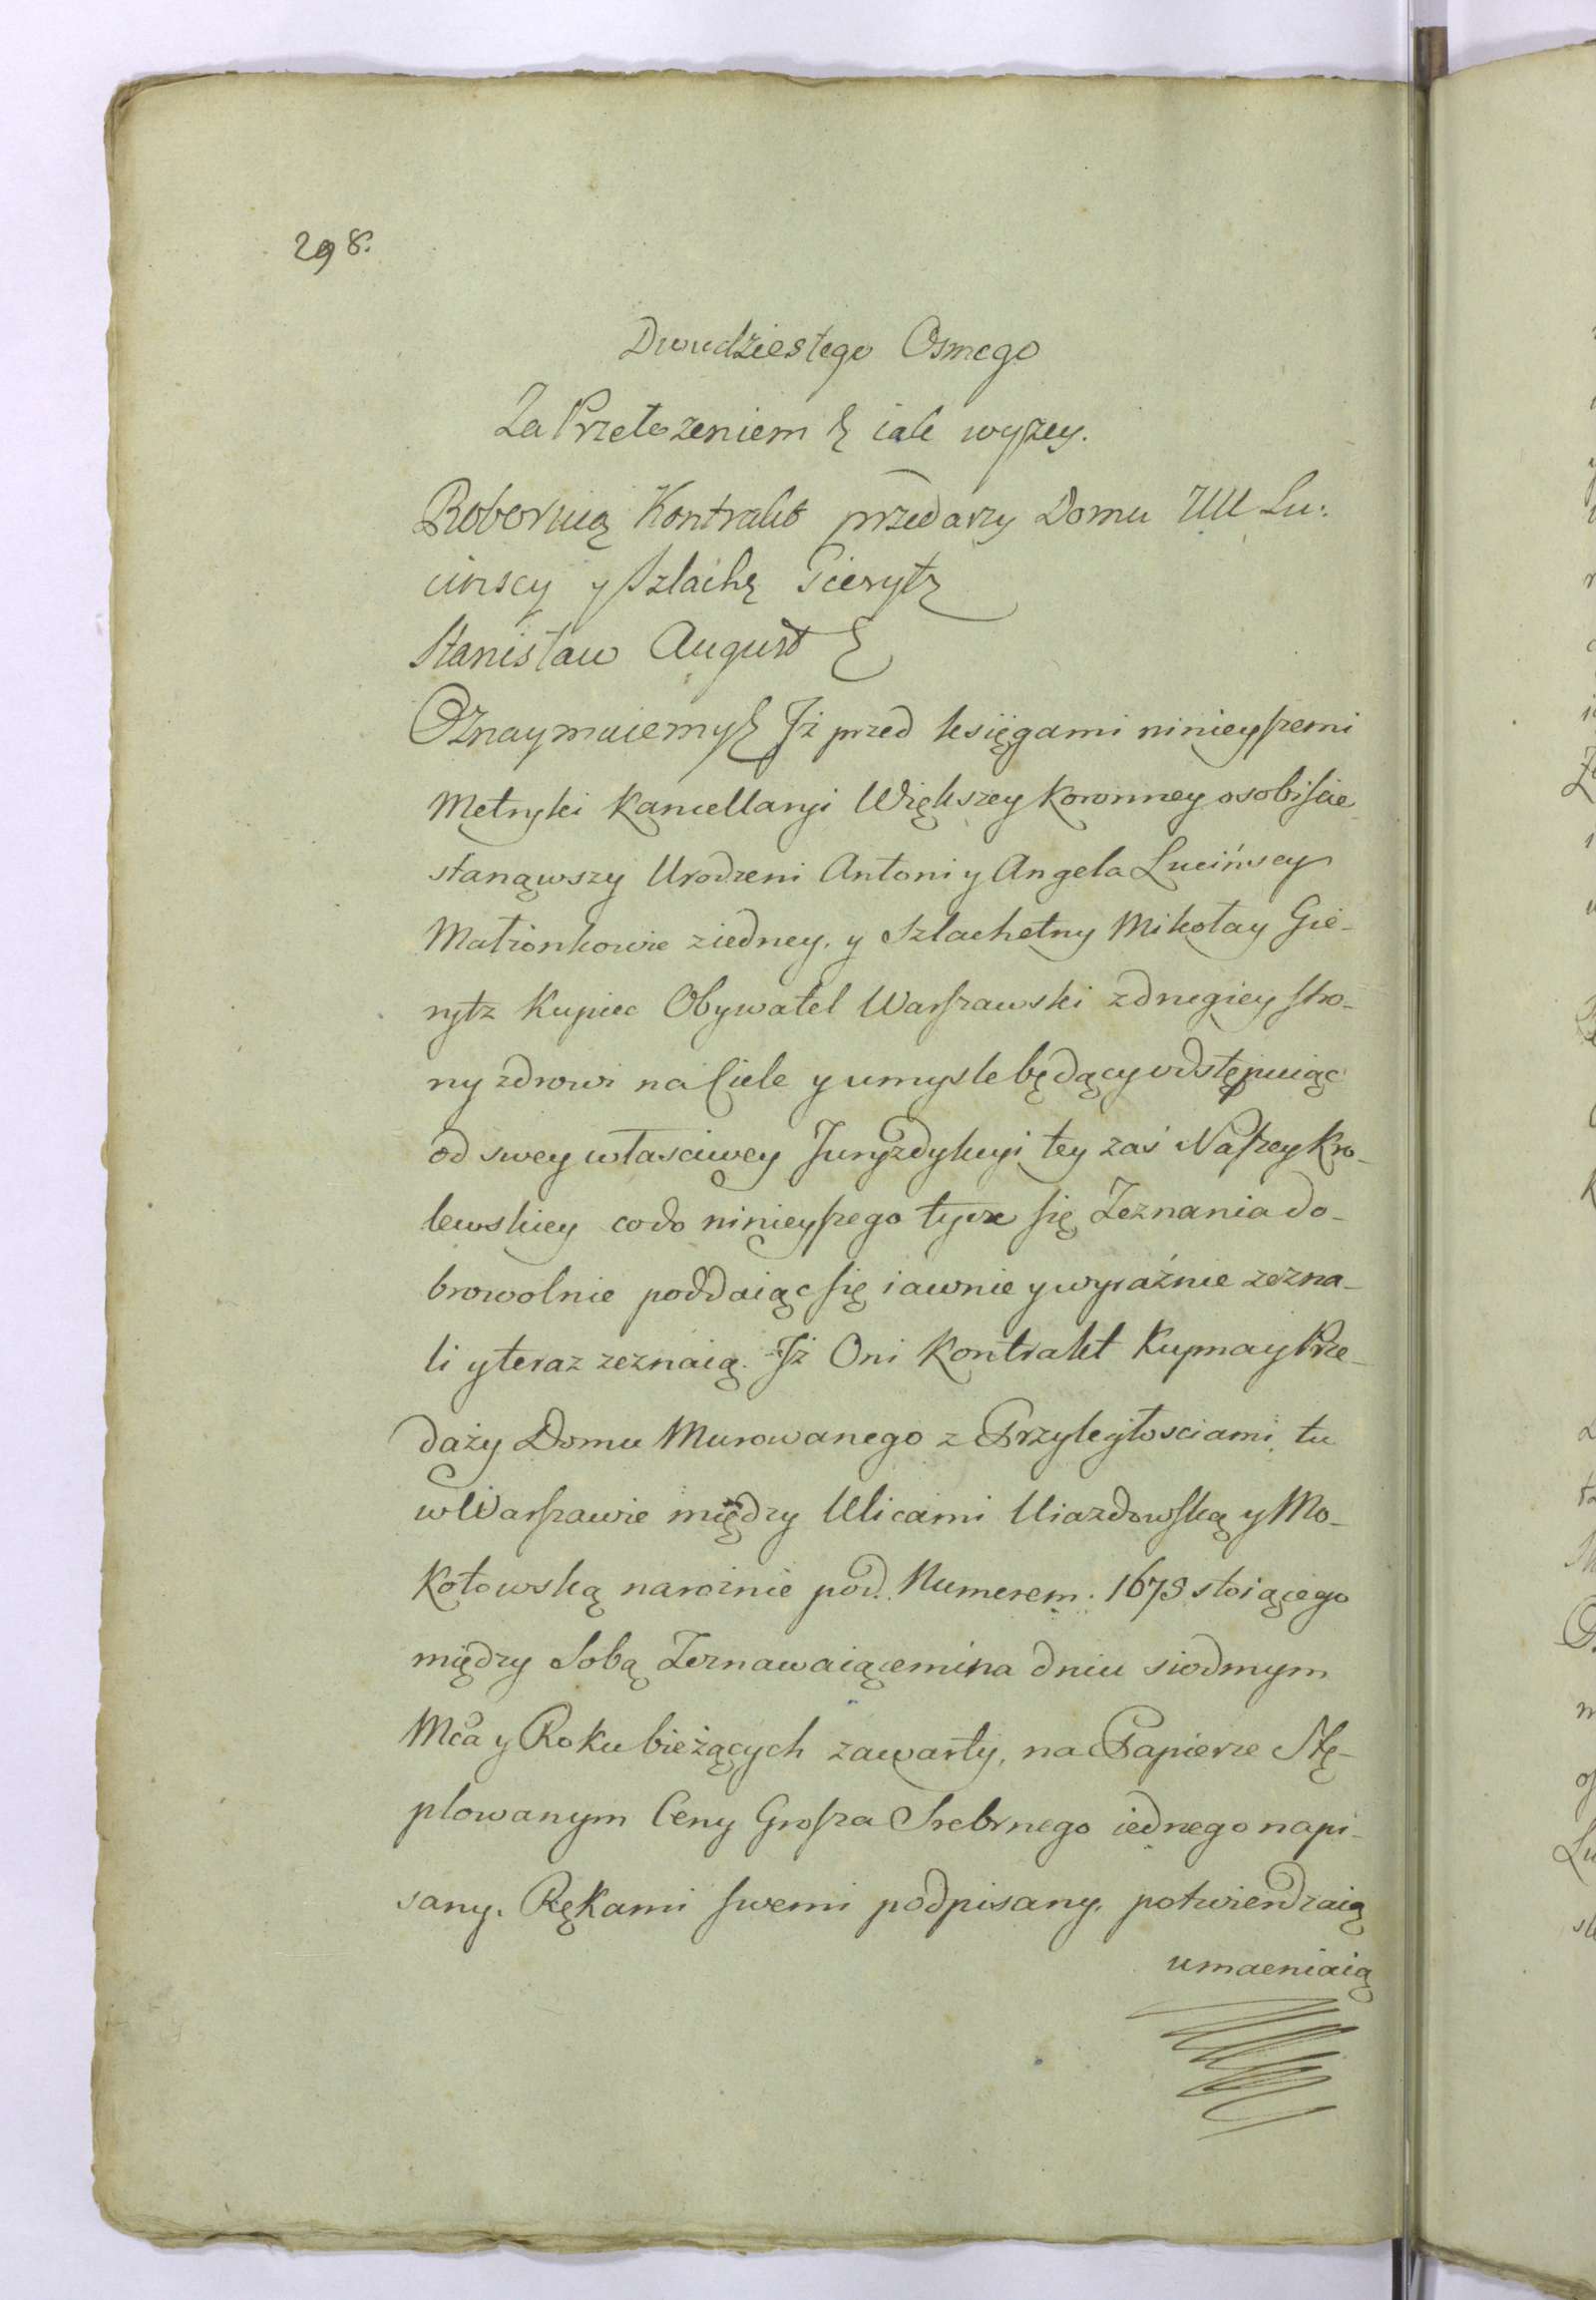 298.
Dwudziestego Osmego
Za Przełożeniem &c iak wyżey.
Roboruią Kontrakt przedarzy Domu UU Lu:
cinscy y Szlachę Gierytz
Stanisław August &c
Oznaymuiemy &c Jż przed księgami ninieyszemi
Metryki Kancellaryi Większey Koronney osobiscie
stanąwszy Urodzeni Antoni y Angela Lucińscy
Małżonkowie ziedney, y Szlachetny Mikołay Gie-
rytz Kupiec Obywatel Warszawski zdrugiey stro-
ny zdrowi na Ciele y umysle będący odstępuiąc
od swey własciwey Juryzdykcyi, tey zaś Naszey Kro-
lewskiey codo ninieyszego tycze się Zeznania do-
browolnie poddaiąc się iawnie y wyraźnie zezna-
li y teraz zeznaią. Jż Oni Kontrakt Kupna y Prze-
daży Domu Murowanego z Przyległosciami tu
w Warszawie między Ulicami Uiazdowską y Mo-
kotowską narożnie pod Numerem. 1678 stoiącego
między Sobą Zeznawaiącemi na dniu siodmym
Mca y Roku bieżących zawarty, na Papierze Stę-
plowanym Ceny Grosza Srebrnego iednego napi-
sany. Rękami swemi podpisany, potwierdzaią
umacniaią